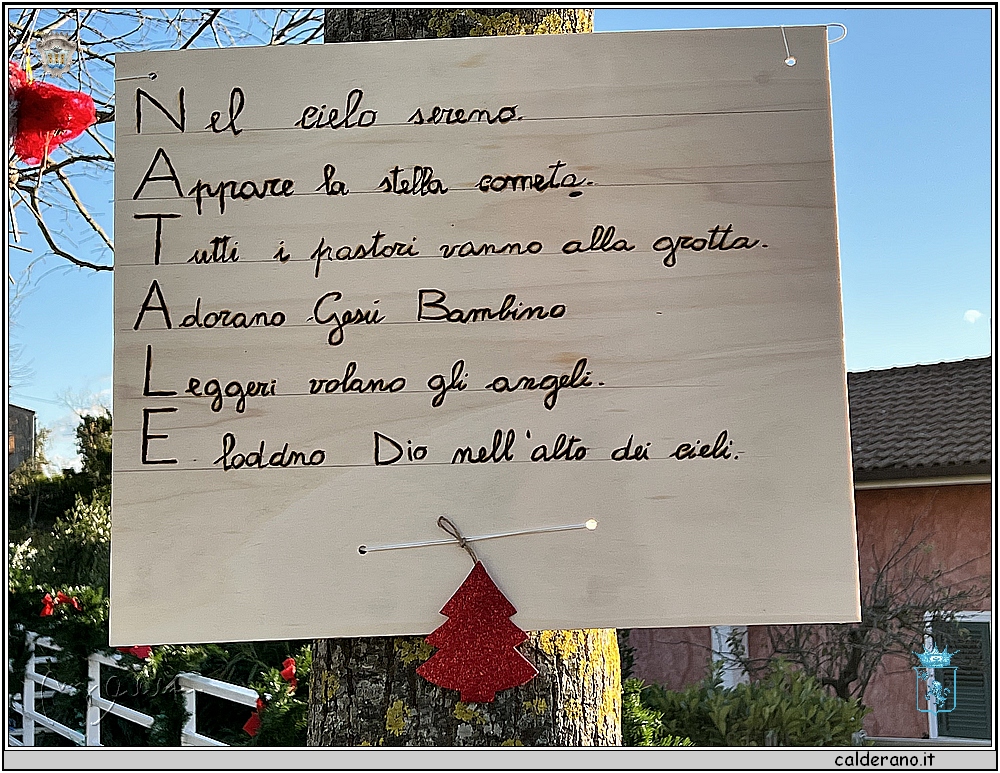 Nel cielo sereno.
Appare la stella cometa.
Tutti i pastori vanno alla grotta.
Adorano Gesù Bambino
Leggeri volano gli angeli.
E loddno Dio nell'alto dei cieli.
calderano.it